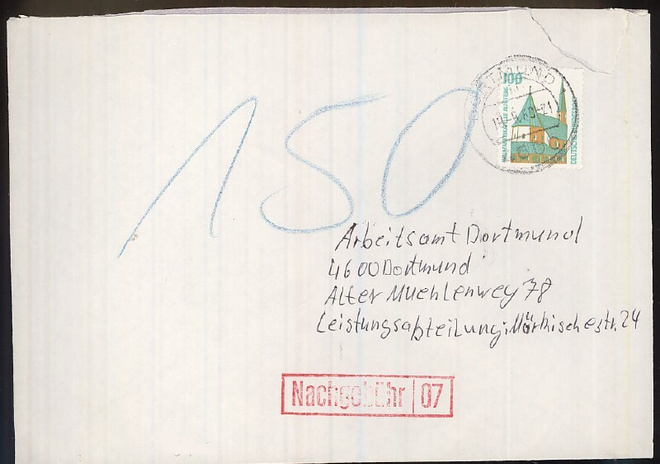 100
DORTMUND
DEUTSCHE
150
Arbeitsamt Dortmund
4600 Dortmund
Alter Muehlenweg 78
Leistungsabteilung: Märkischestr. 24
Nachgebühr 07